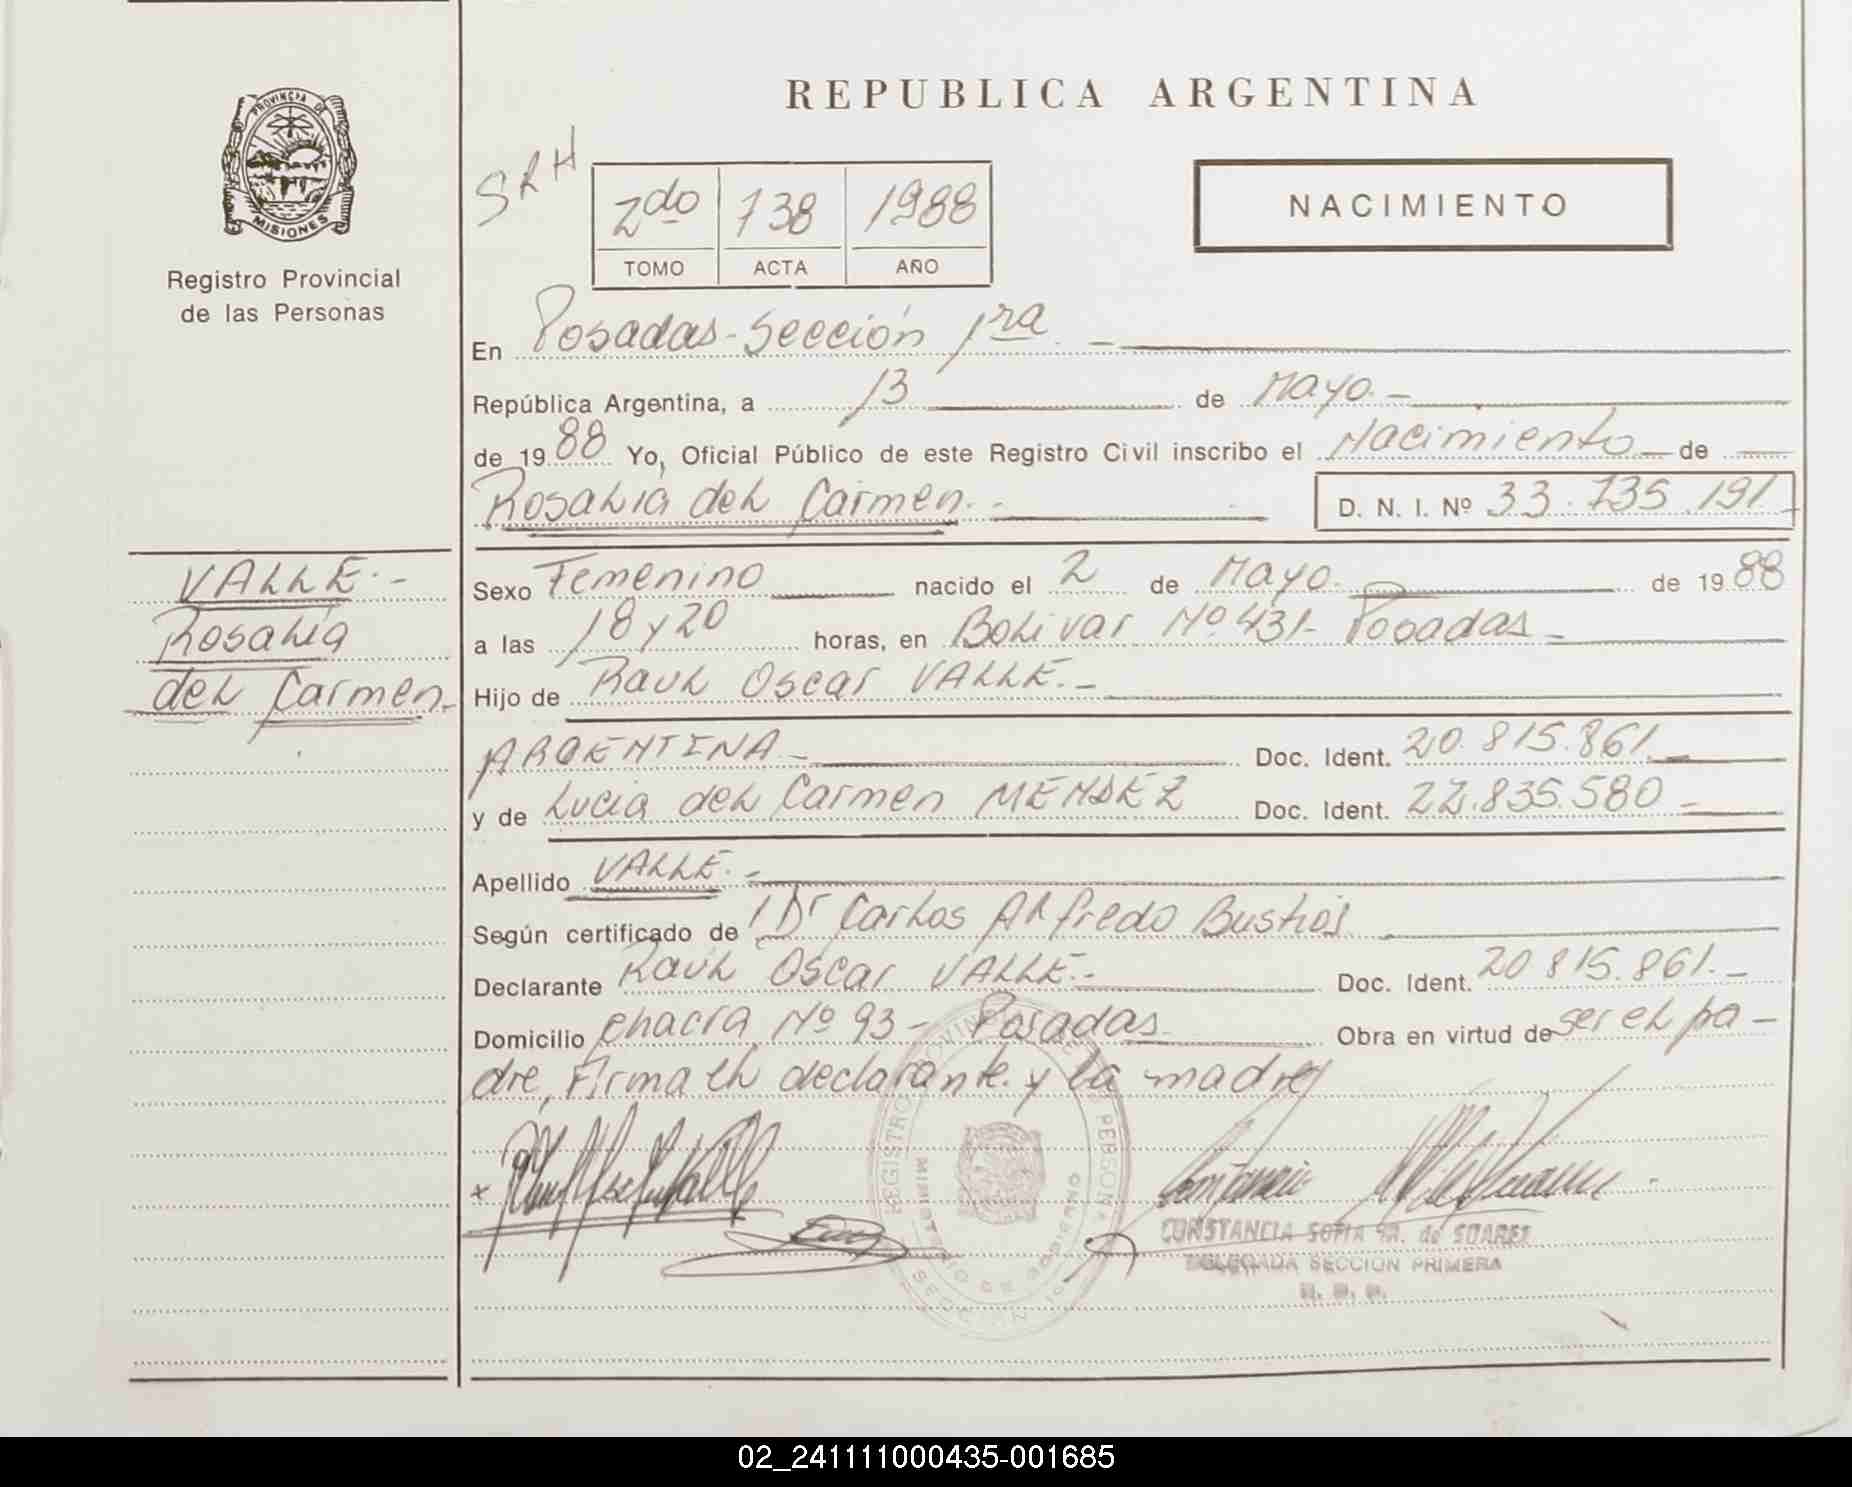 REPUBLICA ARGENTINA
PROVINCIA DE
MISIONES
Registro Provincial
de las Personas
SRH
2do 738 1988
TOMO ACTA AÑO
NACIMIENTO
En Posadas-Sección 1ra. -
República Argentina, a 13 de Mayo. -
de 1988 Yo, Oficial Público de este Registro Civil inscribo el Nacimiento de
Rosalía del Carmen. - D. N. I. Nº 33.735.191
VALLE. -
Rosalía
del Carmen. -
Sexo Femenino nacido el 2 de Mayo. de 1988
a las 18 y 20 horas, en Bolivar Nº 431- Posadas -
Hijo de Raul Oscar VALLE. -
ARGENTINA - Doc. Ident. 20.815.861 -
y de Lucia del Carmen MENDEZ Doc. Ident. 22.835.580 -
Apellido VALLE. -
Según certificado de Dr Carlos Alfredo Bustios
Declarante Raul Oscar VALLE. - Doc. Ident. 20 815.861. -
Domicilio chacra Nº 93 - Posadas Obra en virtud de ser el pa-
dre, Firma el declarante. y la madre
REGISTRO PROVINCIAL PERSONAS
MINISTERIO DE GOBIERNO
SECCION 1º
CONSTANCIA SOFIA de SUAREZ
DELEGADA SECCION PRIMERA
02_241111000435-001685